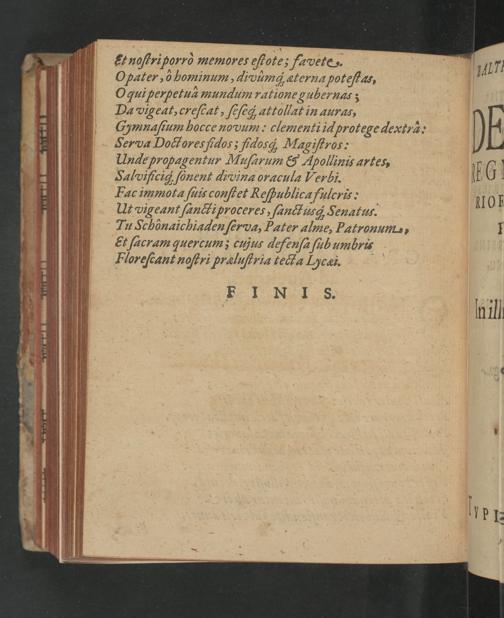 Et noſtri porrò memores eſtote; favete.
O pater, ò hominum, divûmq́; æterna poteſtas,
O qui perpetuâ mundum ratione gubernas;
Da vigeat, creſcat, ſeſeq́; attollat in auras,
Gymnaſium hocce novum: clementi id protege dextrâ:
Serva Doctores fidos; fidosq́; Magiſtros:
Unde propagentur Muſarum & Apollinis artes,
Salvificiq́; ſonent divina oracula Verbi.
Fac immota ſuis conſtet Reſpublica fulcris:
Ut vigeant ſancti proceres, ſanctusq́; Senatus.
Tu Schônaichiaden ſerva, Pater alme, Patronum,
Et ſacram quercum; cujus defenſa ſub umbris
Floreſcant noſtri præluſtria tecta Lycæi.
FINIS.
BALT
DE
REG
RIOR
In ill
TYPI